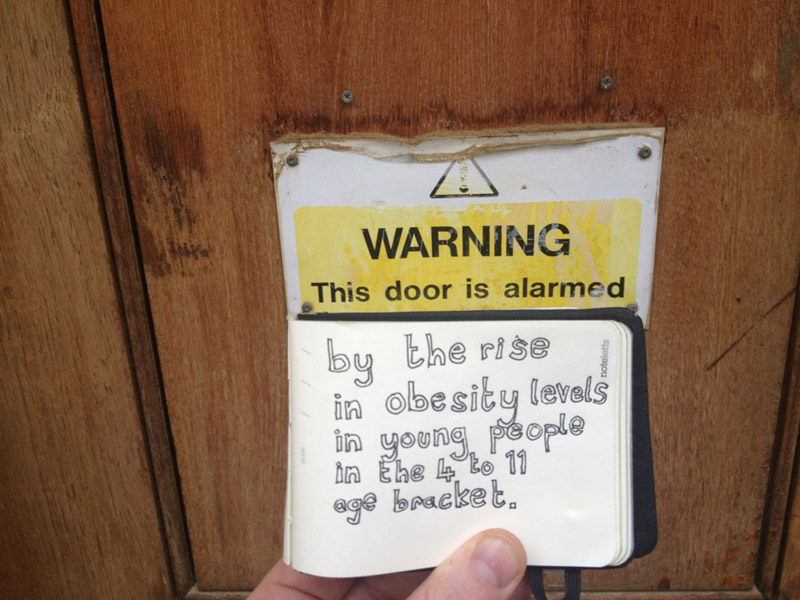 WARNING
This door is alarmed
by the rise
in obesity levels
in young people
in the 4 to 11
age bracket.
noteletts